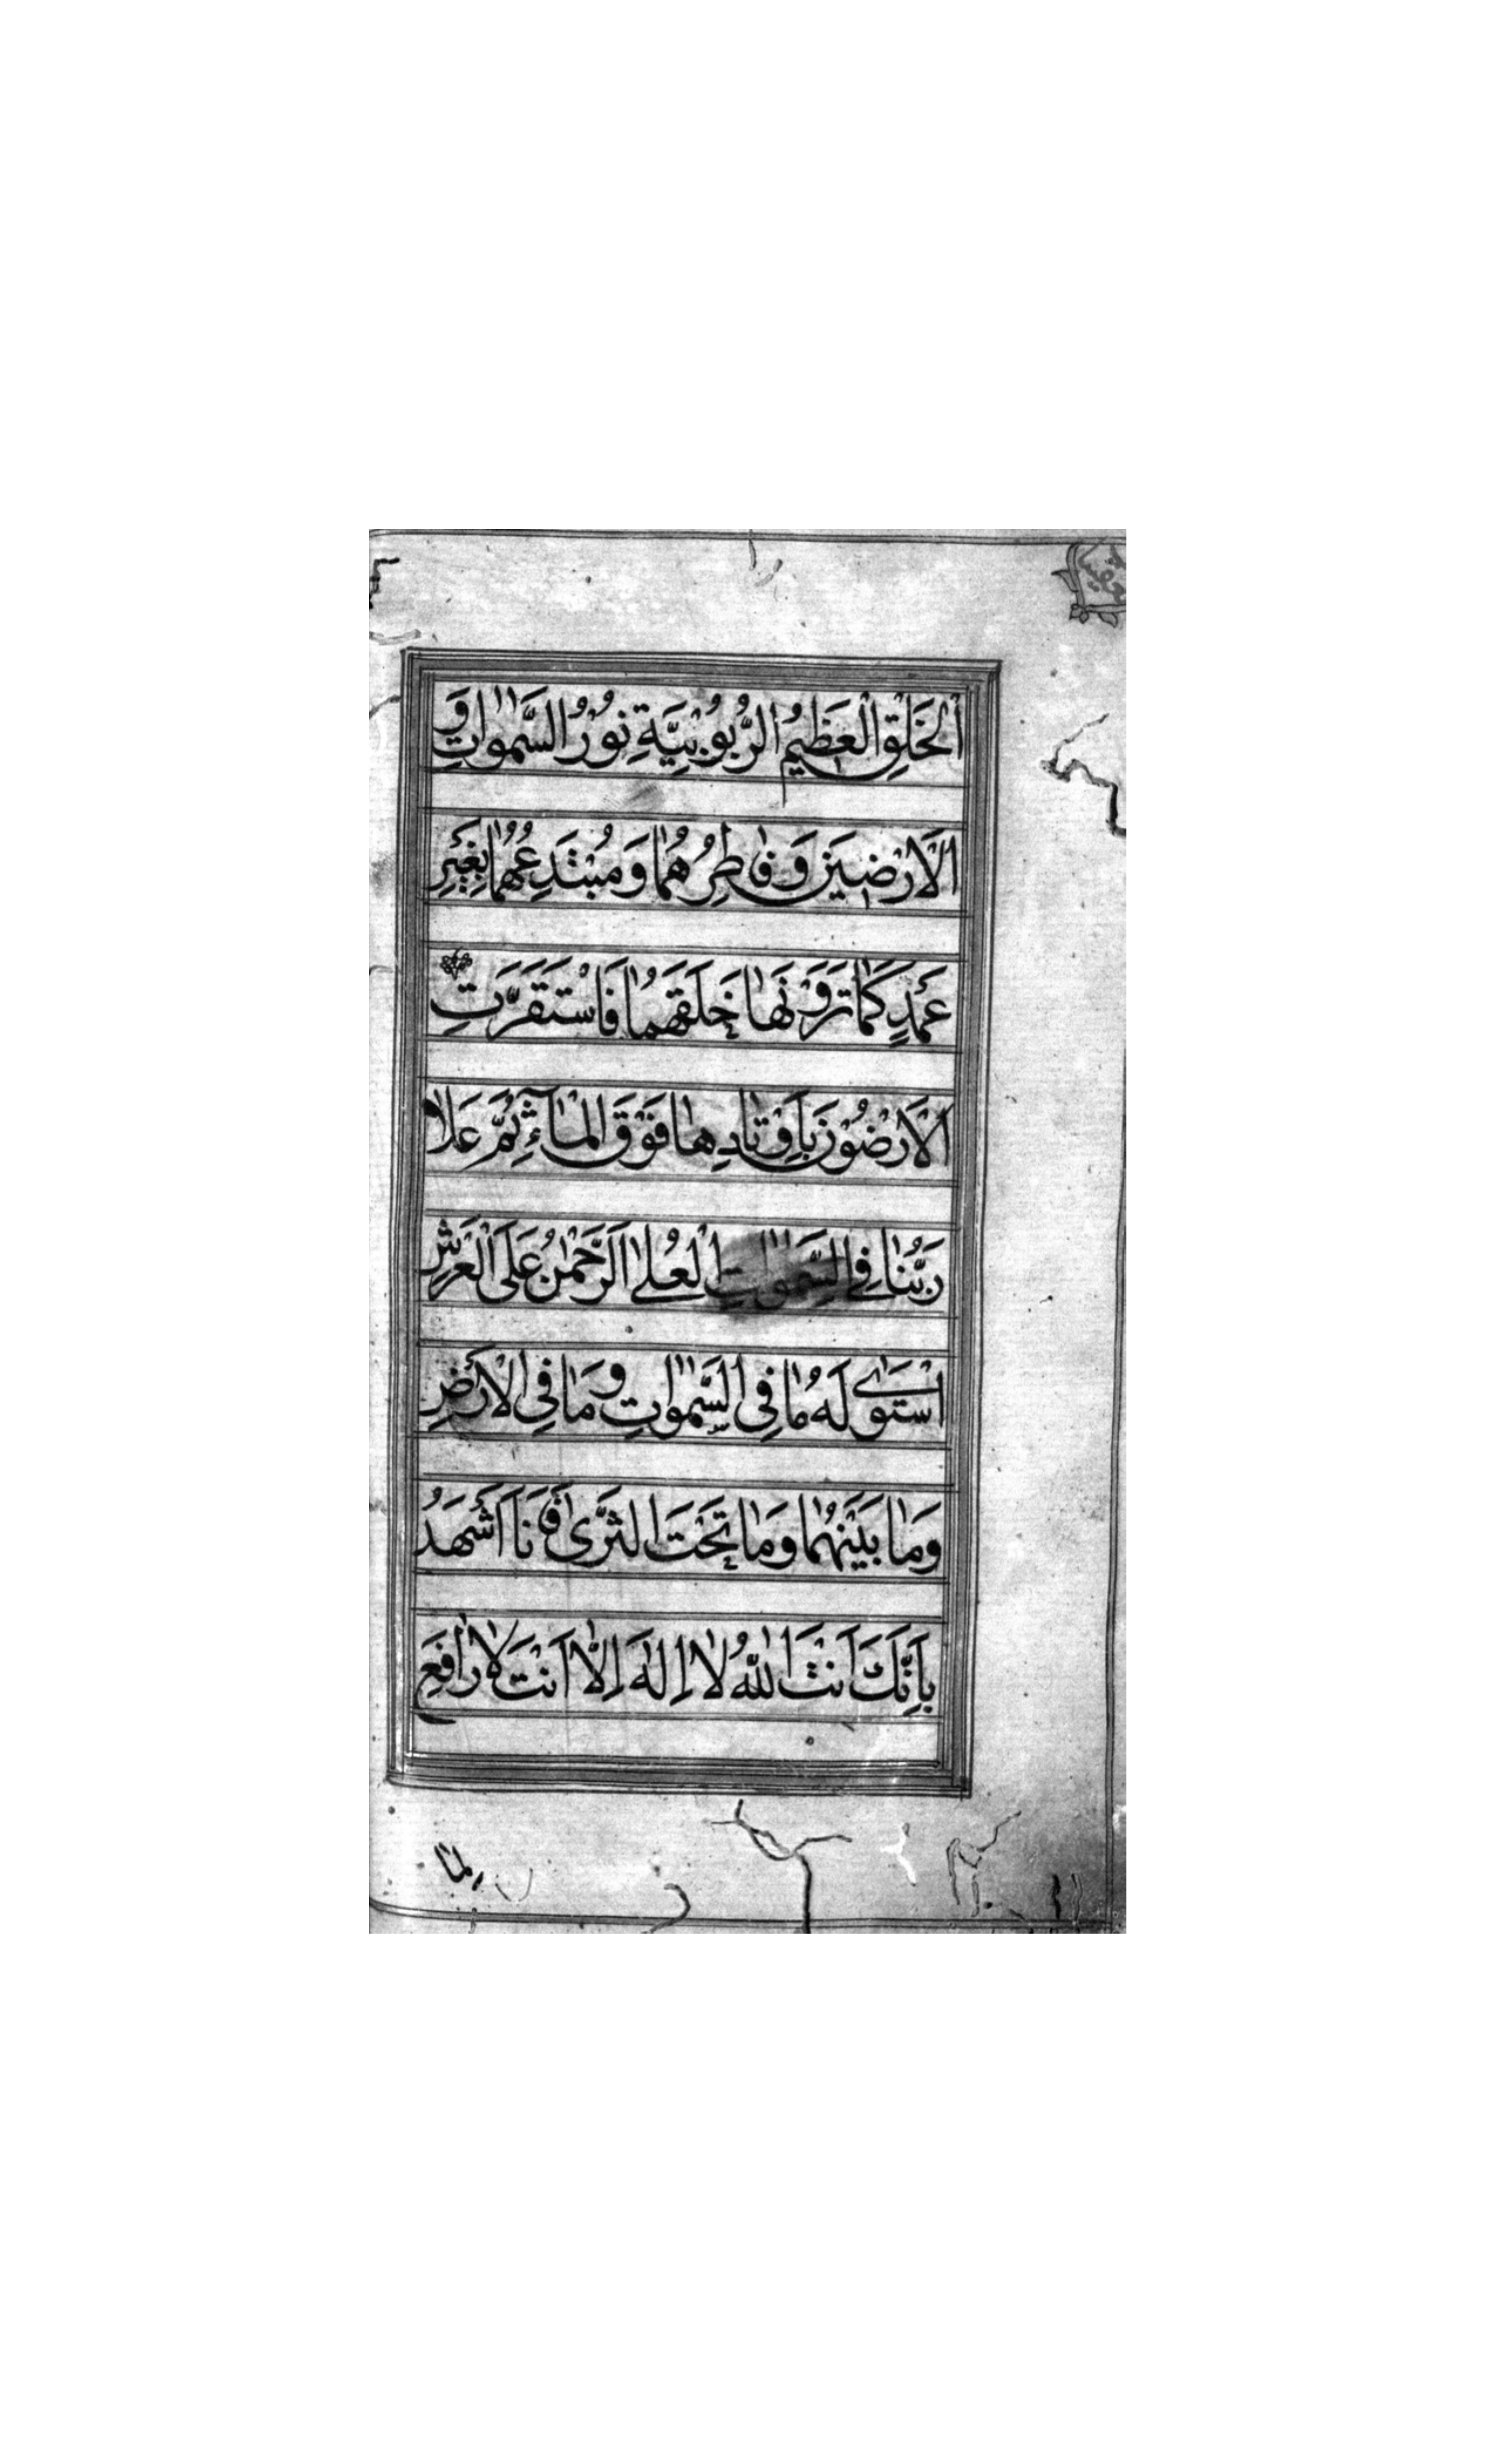 اَلْخَلْقِ الْعَظِيْمِ الرُّبُوْبِيَّةِ نُوْرُ السَّمٰوَاتِ وَ
الْاَرْضِيْنَ وَ فَاطِرُهُمَا وَ مُبْتَدِعُهُمَا بِغَيْرِ
عَمَدٍ كَمَا تَرَوْنَهَا خَلَقَهُمَا فَاسْتَقَرَّتِ
الْاَرْضُوْنَ بِاَوْتَادِهَا فَوْقَ الْمَآءِ ثُمَّ عَلَا
رَبُّنَا فِي السَّمٰوَاتِ الْعُلٰى اَلرَّحْمٰنُ عَلَى الْعَرْشِ
اسْتَوٰى لَهُ مَا فِى السَّمٰوَاتِ وَ مَا فِى الْاَرْضِ
وَمَا بَيْنَهُمَا وَمَا تَحْتَ الثَّرٰى فَاَنَا اَشْهَدُ
بِاَنَّكَ اَنْتَ اللّٰهُ لَا اِلٰهَ اِلَّا اَنْتَ لَا رَافِعَ
لِمَا